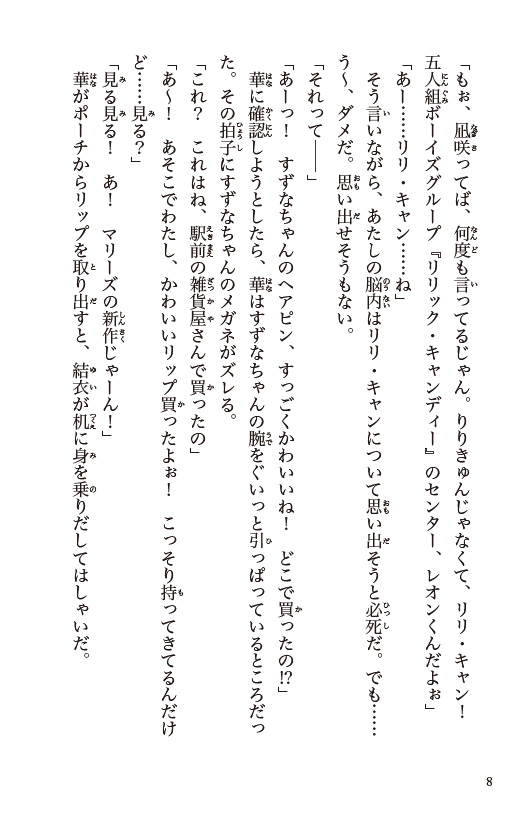 「もぉ、凪咲ってば、何度も言ってるじゃん。りりきゅんじゃなくて、リリ・キャン！
五人組ボーイズグループ『リリック・キャンディー』のセンター、レオンくんだよぉ」
「あー……リリ・キャン……ね」
そう言いながら、あたしの脳内はリリ・キャンについて思い出そうと必死だ。でも……
う〜、ダメだ。思い出せそうもない。
「それって――」
「あーっ！　すずなちゃんのヘアピン、すっごくかわいいね！　どこで買ったの!?」
華に確認しようとしたら、華はすずなちゃんの腕をぐいっと引っぱっているところだっ
た。その拍子にすずなちゃんのメガネがズレる。
「これ？　これはね、駅前の雑貨屋さんで買ったの」
「あ〜！　あそこでわたし、かわいいリップ買ったよぉ！　こっそり持ってきてるんだけ
ど……見る？」
「見る見る！　あ！　マリーズの新作じゃーん！」
華がポーチからリップを取り出すと、結衣が机に身を乗りだしてはしゃいだ。
8